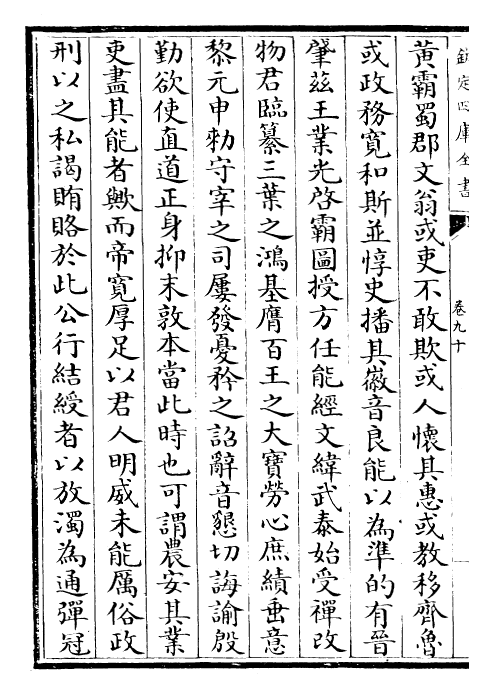 欽定四庫全書
卷九十
黄霸蜀郡文翁或吏不敢欺或人懷其惠或教移齊魯
或政務寛和斯並惇史播其徽音良能以為準的有晉
肇兹王業光啓霸圖授方任能經文緯武泰始受禪改
物君臨纂三葉之鴻基膺百王之大寶勞心庶績垂意
黎元申勑守宰之司屢發憂矜之詔辭音懇切誨諭殷
勤欲使直道正身抑末敦本當此時也可謂農安其業
吏盡其能者歟而帝寛厚足以君人明威未能厲俗政
刑以之私謁賄賂於此公行結綬者以放濁為通彈冠